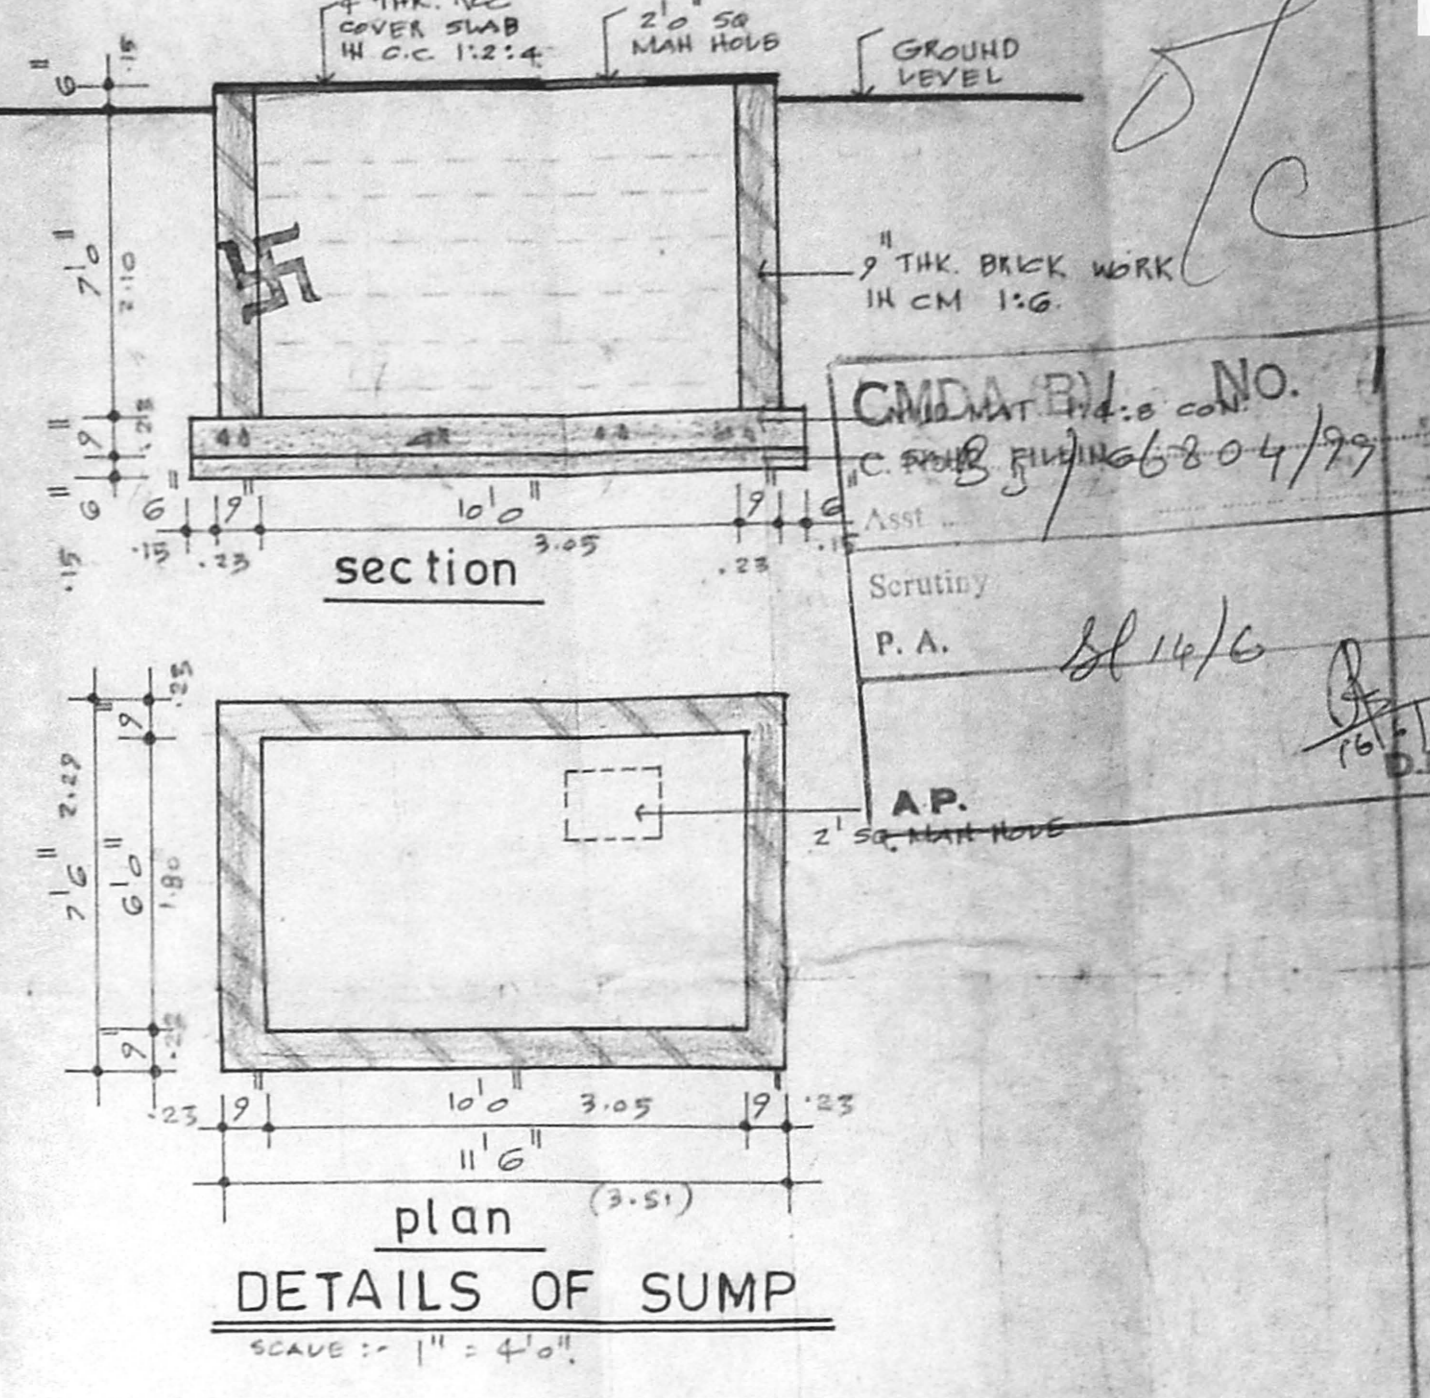 COVER SLAB
IN C.C. 1:2:4
2'0" SQ
MAN HOLE
GROUND
LEVEL
6"
.15
7'0"
2.10
9" THK. BRICK WORK
IN CM 1:6.
CMDA NO.
MAT 1:4:8 CON.
C. FILLING 6804/99
Asst
Scrutiny
P. A.
14/6
9"
.23
6"
.15
6" 9" 10'0" 9" 6"
.15 .23 3.05 .23 .15
section
9" .23
7'6" 2.29
6'0" 1.80
9"
A.P.
2' SQ. MAN HOLE
.23 9" 10'0" 3.05 9" .23
11'6"
(3.51)
plan
DETAILS OF SUMP
SCALE :- 1" = 4'0".